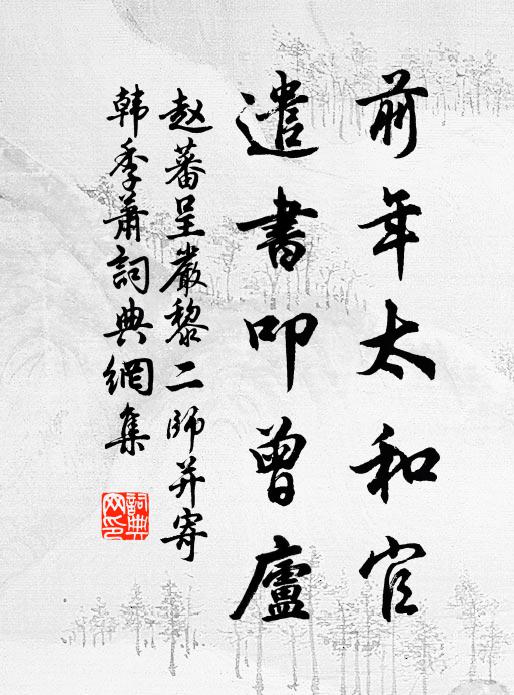 前年太和官
遣書叩曾廬
赵蕃呈嚴黎二師并寄
韩季萧詞典網集
詞典网印